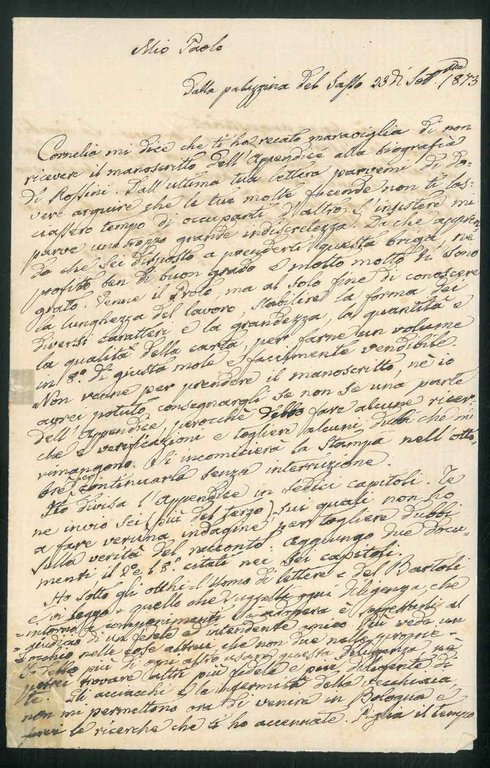 Mio Paolo
Dalla palazzina del Sasso 23 di Sett. 1873
Cornelia mi dice che ti ha recato maraviglia di non
ricevere il manoscritto dell'Appendice alla biografia
di Rossini. Dall'ultima tua lettera parvemi di do-
vere arguire che le tue molte faccende non ti las-
ciassero tempo di occuparti d'altro. L'insistere mi
parve una troppo grande indiscretezza. Da che appren-
do che sei disposto a prenderti questa briga, ne
profitto ben di buon grado e molto molto ti sono
grato. Venne il Proto, ma al solo fine di conoscere
la lunghezza del lavoro, stabilire la forma dei
diversi caratteri e la grandezza, la quantità e
la qualità della carta, per farne un volume
in 8.° di giusta mole e facilmente vendibile.
Non venne per prendere il manoscritto, nè io
avrei potuto consegnargli se non se una parte
dell'Appendice, perocchè debbo fare alcune ricer-
che e verificazioni e togliere alcuni dubbi che mi
rimangono. Si incomincerà la stampa nell'otto-
bre per continuarla senza interruzione.
Ho divisa l'Appendice in sedici capitoli. Te
ne invio sei (più del terzo) sui quali non ho
a fare veruna indagine per togliere dubbi
sulla verità del racconto. Aggiungo due docu-
menti il 2° e 3° citati nei sei capitoli.
Ho sotto gli occhi l'Uomo di lettere del Bartoli
e vi leggo quello che ogni diligenza che
intorno a' componimenti si adopera è sottoporli al
giudizio di un fedele e intendente amico. Più vede un
occhio nelle cose altrui che non due nelle proprie.
Io debbo più di ogni altro usare questa diligenza ne
potrei trovare altri più fedele e più diligente di
te. Gli acciacchi e le infermità della vecchiaia
non mi permettono ora di venire in Bologna e
fare le ricerche che ti ho accennate. Piglia il tempo